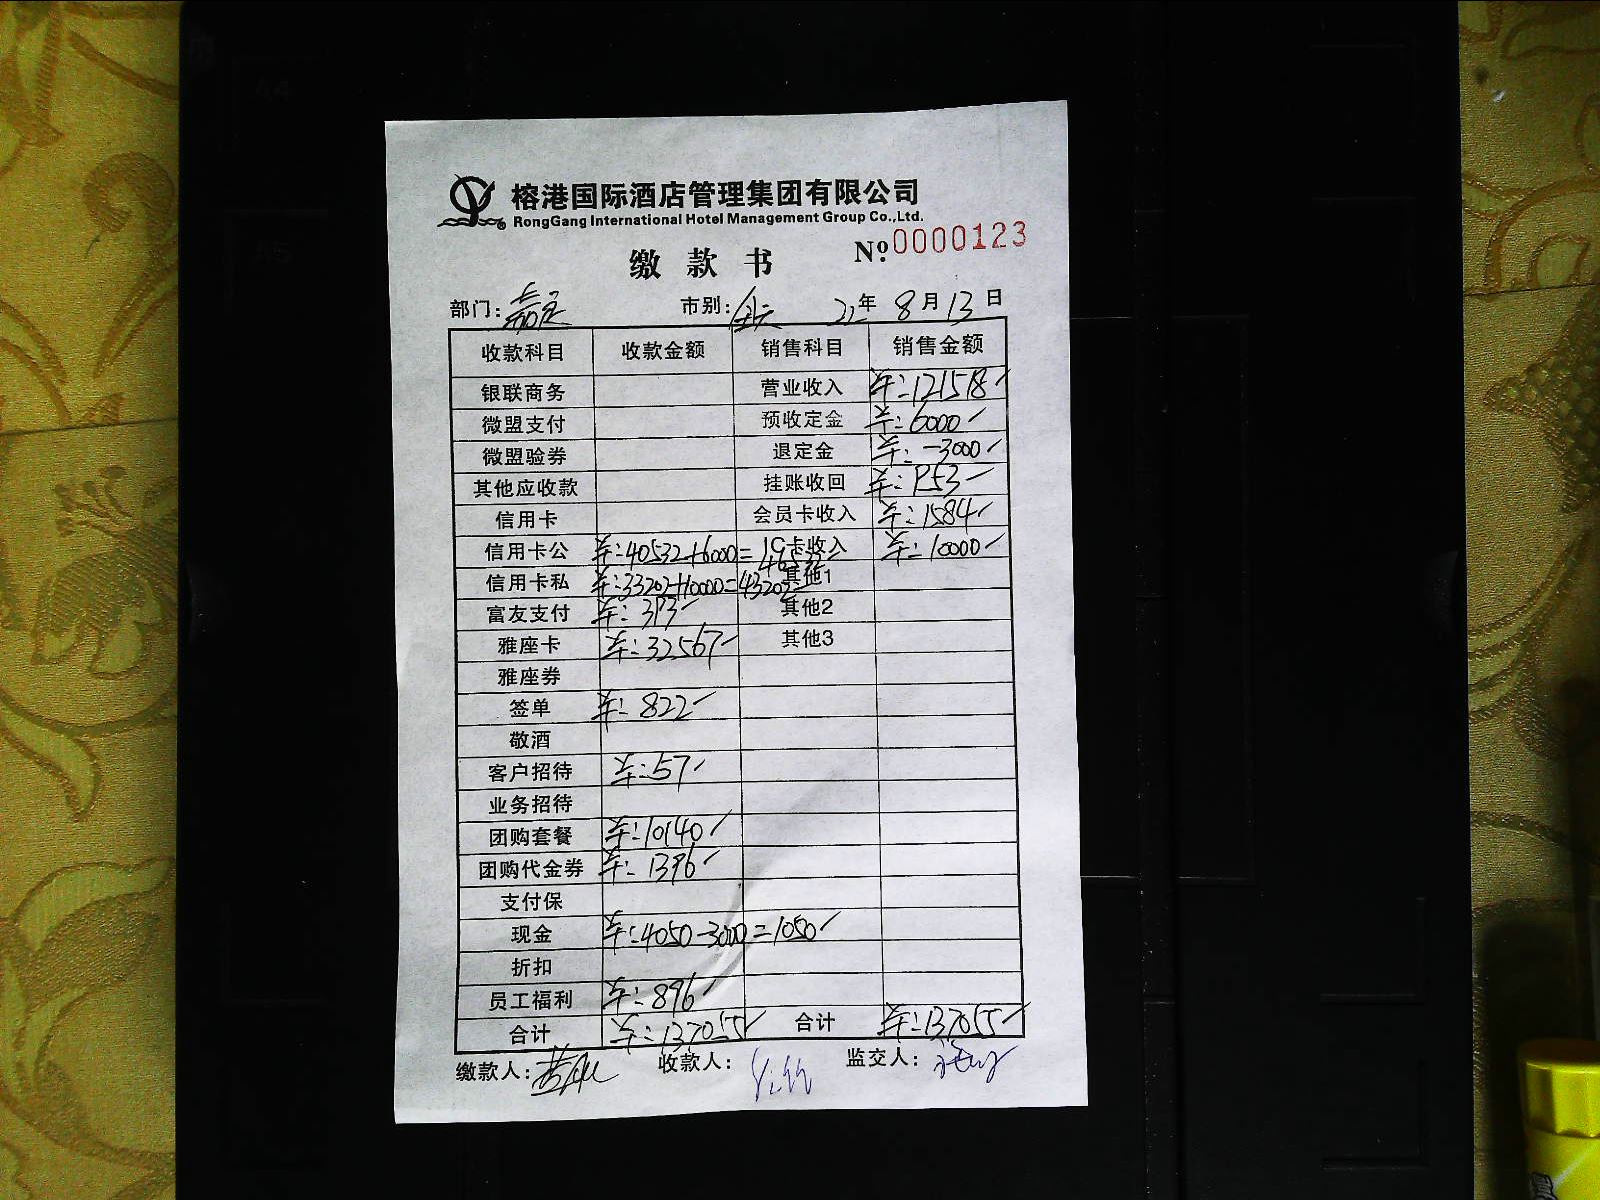 榕港国际酒店管理集团有限公司
RongGang International Hotel Management Group Co.,Ltd.
缴款书 Nº 0000123
部门: 嘉定 市别: 全天 22年 8月13日
收款科目 收款金额 销售科目 销售金额
银联商务 营业收入 ¥:121518
微盟支付 预收定金 ¥:6000
微盟验券 退定金 ¥:-3000
其他应收款 挂账收回 ¥:953
信用卡 会员卡收入 ¥:1584
信用卡公 ¥:40532+6000=46532 IC卡收入 ¥:10000
信用卡私 ¥:33202+10000=43202 其他1
富友支付 ¥:393 其他2
雅座卡 ¥:32567 其他3
雅座券
签单 ¥:822
敬酒
客户招待 ¥:57
业务招待
团购套餐 ¥:10140
团购代金券 ¥:1396
支付保
现金 ¥:4050-3000=1050
折扣
员工福利 ¥:896
合计 ¥:137055 合计 ¥:137055
缴款人: 收款人: 监交人: